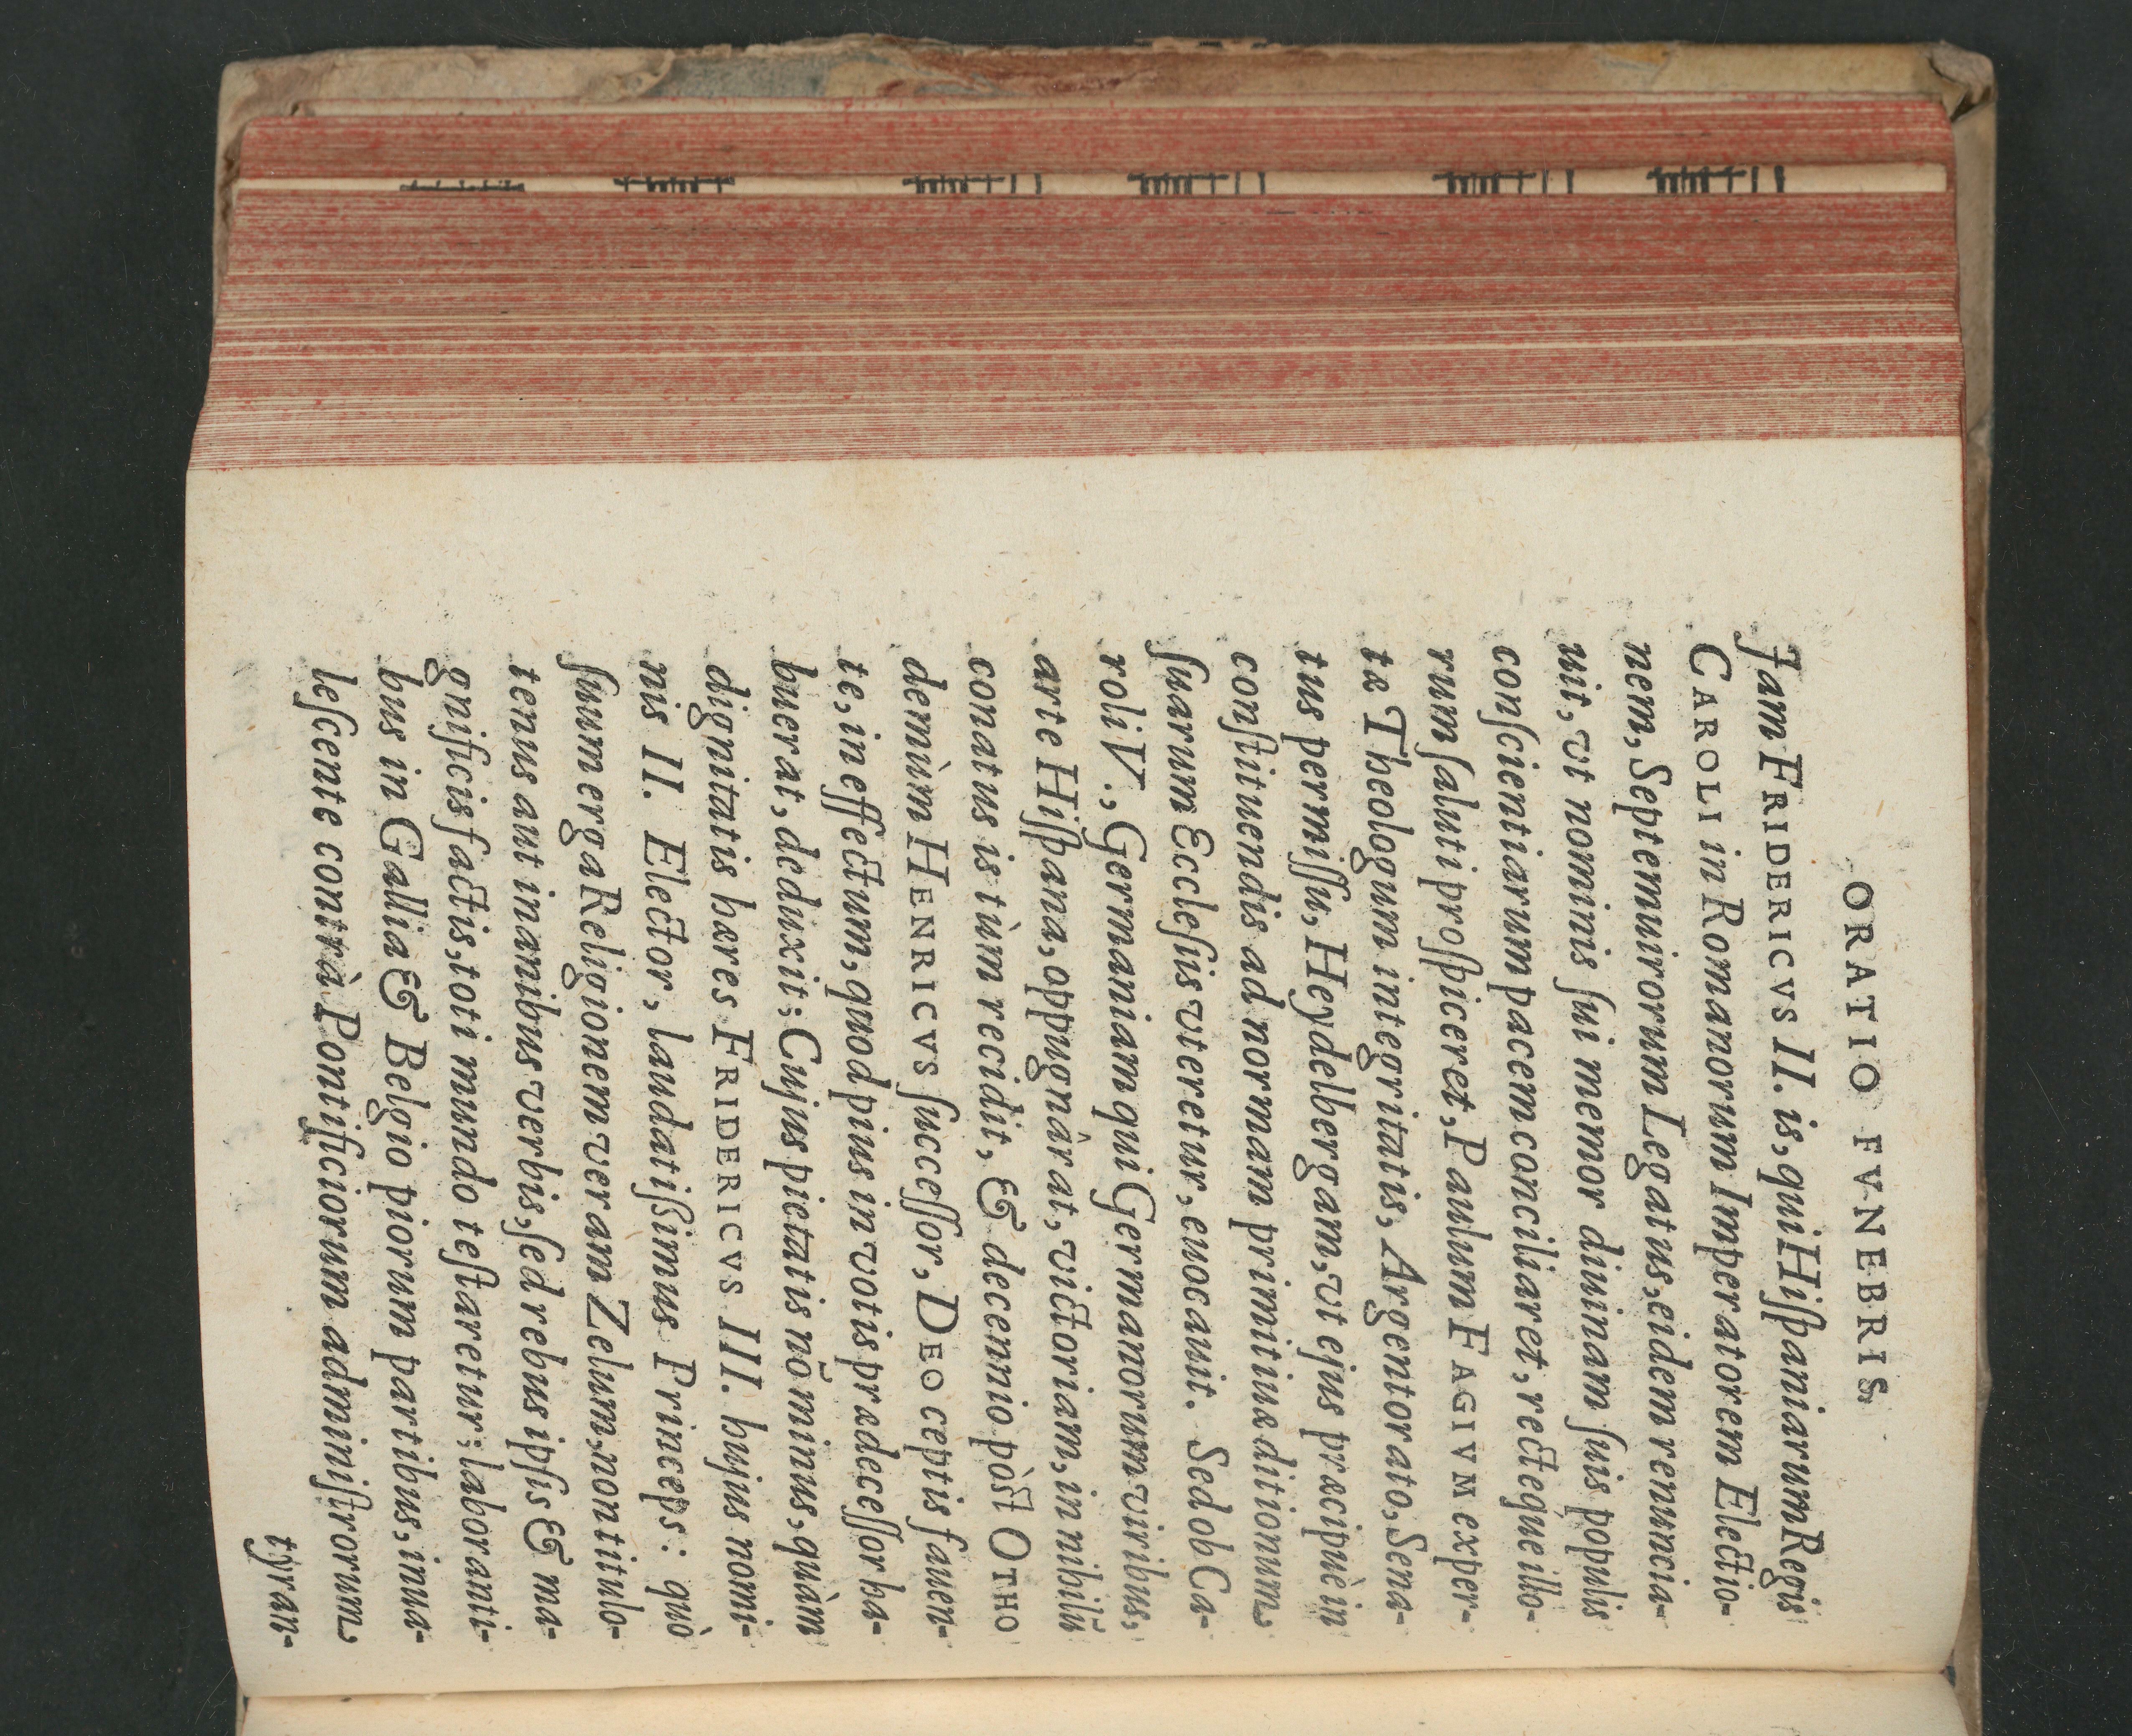 ORATIO FVNEBRIS
Jam FRIDERICVS II. is, qui Hiſpaniarum Regis
CAROLI in Romanorum Imperatorem Electio-
nem, Septemuirorum Legatus, eidem renuncia-
uit, vt nominis ſui memor diuinam ſuis populis
conſcientiarum pacem conciliaret, rectèque illo-
rum ſaluti proſpiceret, Paulum FAGIVM exper-
tæ Theologum integritatis, Argentorato, Sena-
tus permiſſu, Heydelbergam, vt ejus præcipuè in
conſtituendis ad normam primitiuæ ditionum
ſuarum Eccleſiis vteretur, euocauit. Sed ob Ca-
roli V., Germaniam qui Germanorum viribus,
arte Hiſpana, oppugnàrat, victoriam, in nihilũ
conatus is tùm recidit, & decennio pòſt OTHO
demùm HENRICVS ſucceſſor, DEO ceptis fauen-
te, in effectum, quod pius in votis prædeceſſor ha-
buerat, deduxit: Cujus pietatis nõ minus, quàm
dignitatis hæres FRIDERICVS III. hujus nomi-
nis II. Elector, laudatiſsimus Princeps: quò
ſuum erga Religionem veram Zelum, non titulo-
tenus aut inanibus verbis, ſed rebus ipſis & ma-
gnificis factis, toti mundo teſtaretur: laboranti-
bus in Gallia & Belgio piorum partibus, inua-
leſcente contrà Pontificiorum adminiſtrorum
tyran-